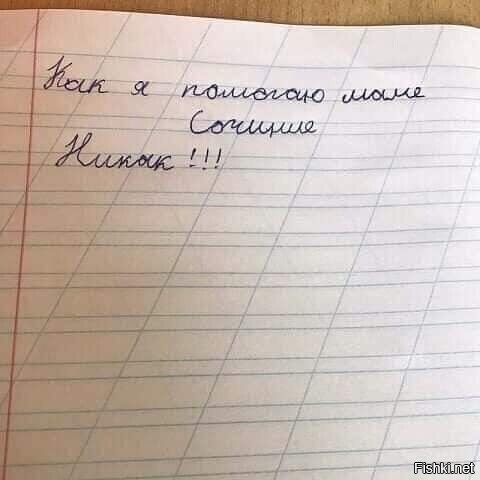 Как я помогаю маме
Сочицие
Никак!!!
Fishki.net